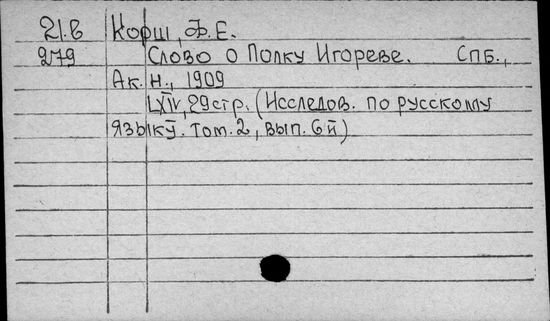 21.6 Корш, Ф.Е.
279 Слово о Полку Игореве. СПБ.,
Ак. Н., 1909
LXIV, 29стр. (Исследов. по русскому
языку. Том. 2, вып. 6й)